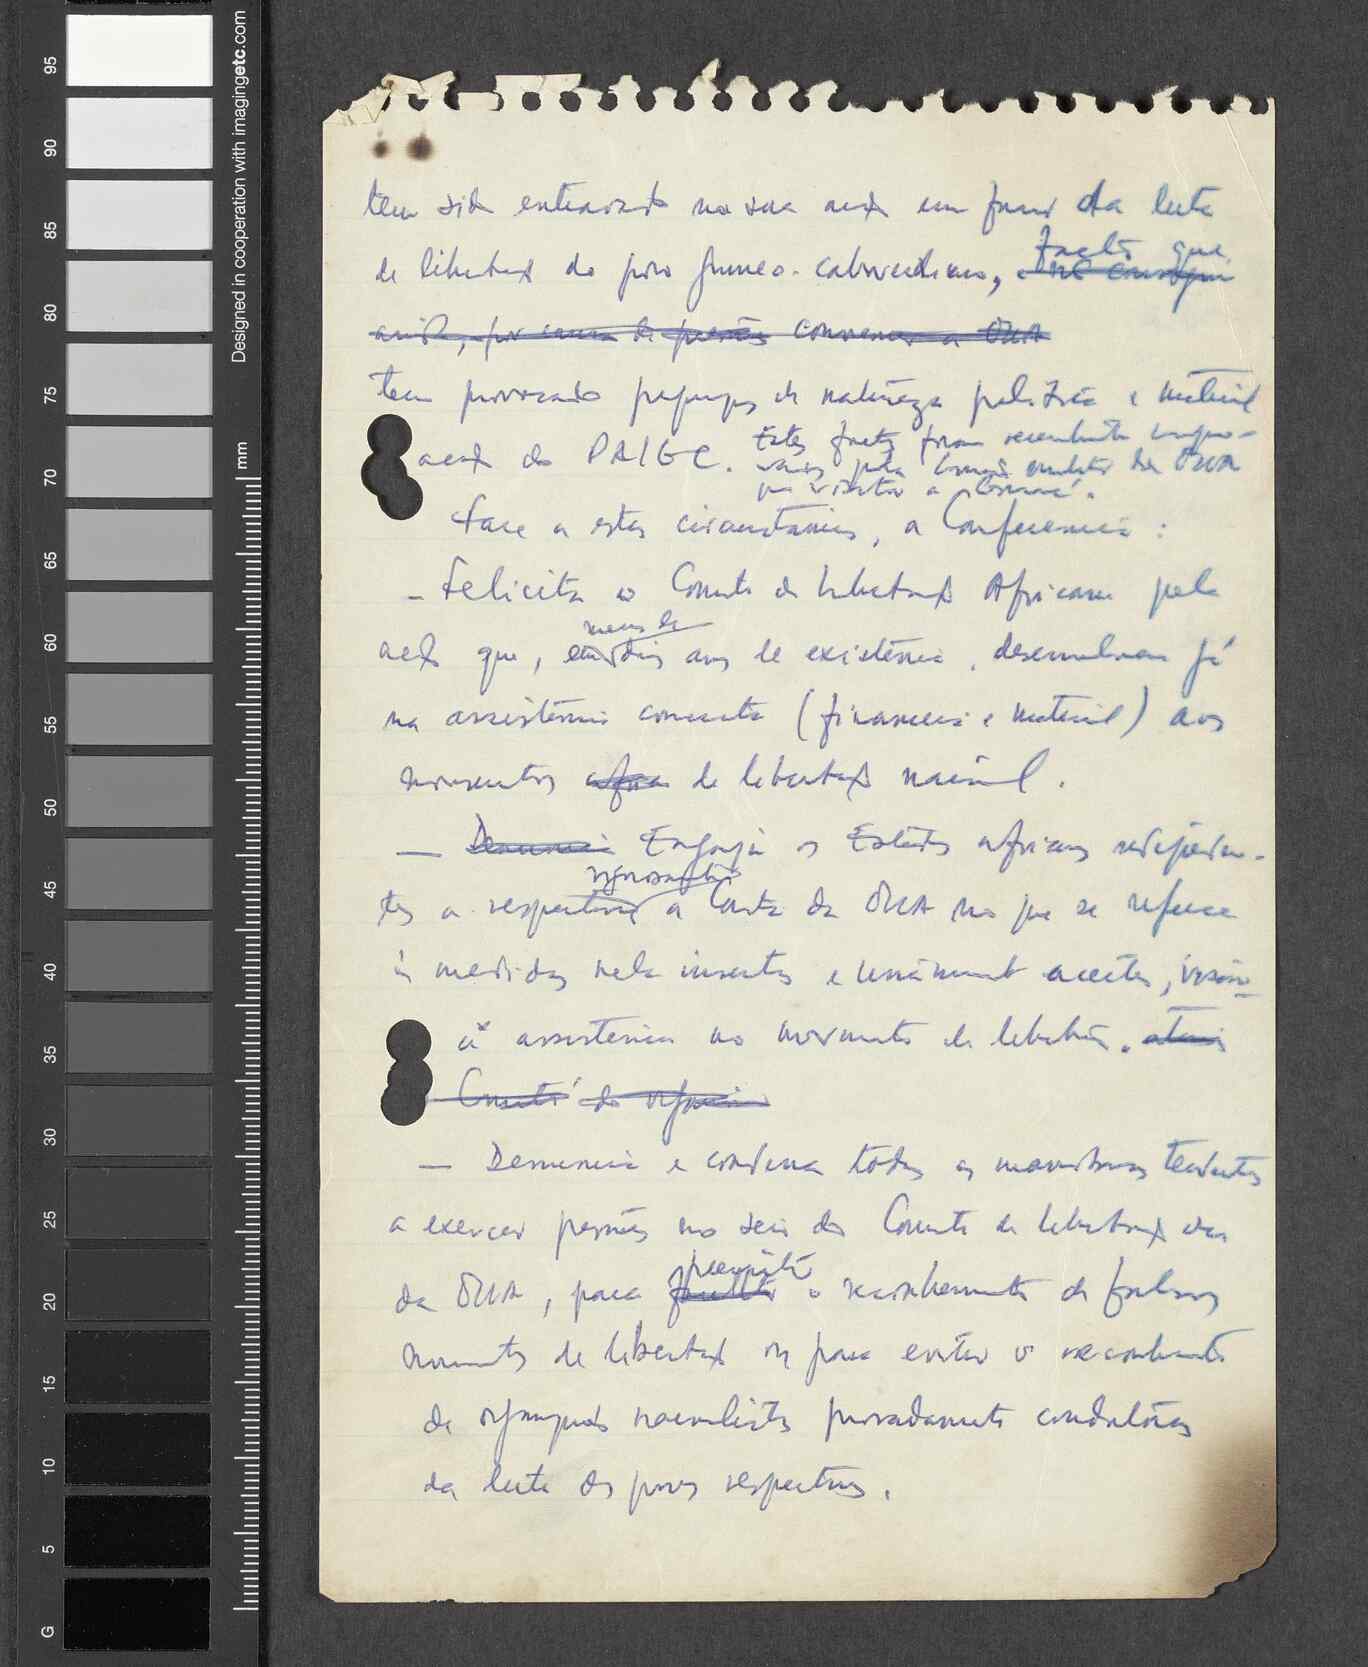 Designed in cooperation with imagingetc.com
mm
95
90
85
80
75
70
65
60
55
50
45
40
35
30
25
20
15
10
5
G
tem sido na sua acção em favor da luta
facto que
de libertação do povo guineo-caboverdiano,
a OUA
tem provocado de natureza política e material
Estes factos foram recentemente
acção do PAIGC.
pela da OUA
que visitou a Conacri.
Face a estas circunstâncias, a Conferência :
- Felicita o Comité de Libertação Africano pela
menos de
acção que, em dois anos de existência, desenvolveu já
na assistência concreta (financeira e material) aos
movimentos de libertação nacional.
— Denuncia Engaja os Estados africanos independen-
rigorosamente
tes a respeitarem a Carta da OUA no que se refere
às medidas nela insertas e unanimemente aceites,
à assistência ao movimento de libertação.
Comité do
— Denuncia e condena todas as manobras tendentes
a exercer pressões no seio do Comité de libertação
permitir
da OUA, para o reconhecimento de falsos
movimentos de libertação ou para evitar o reconhecimento
de organizações nacionalistas provadamente condutoras
da luta dos povos respectivos.